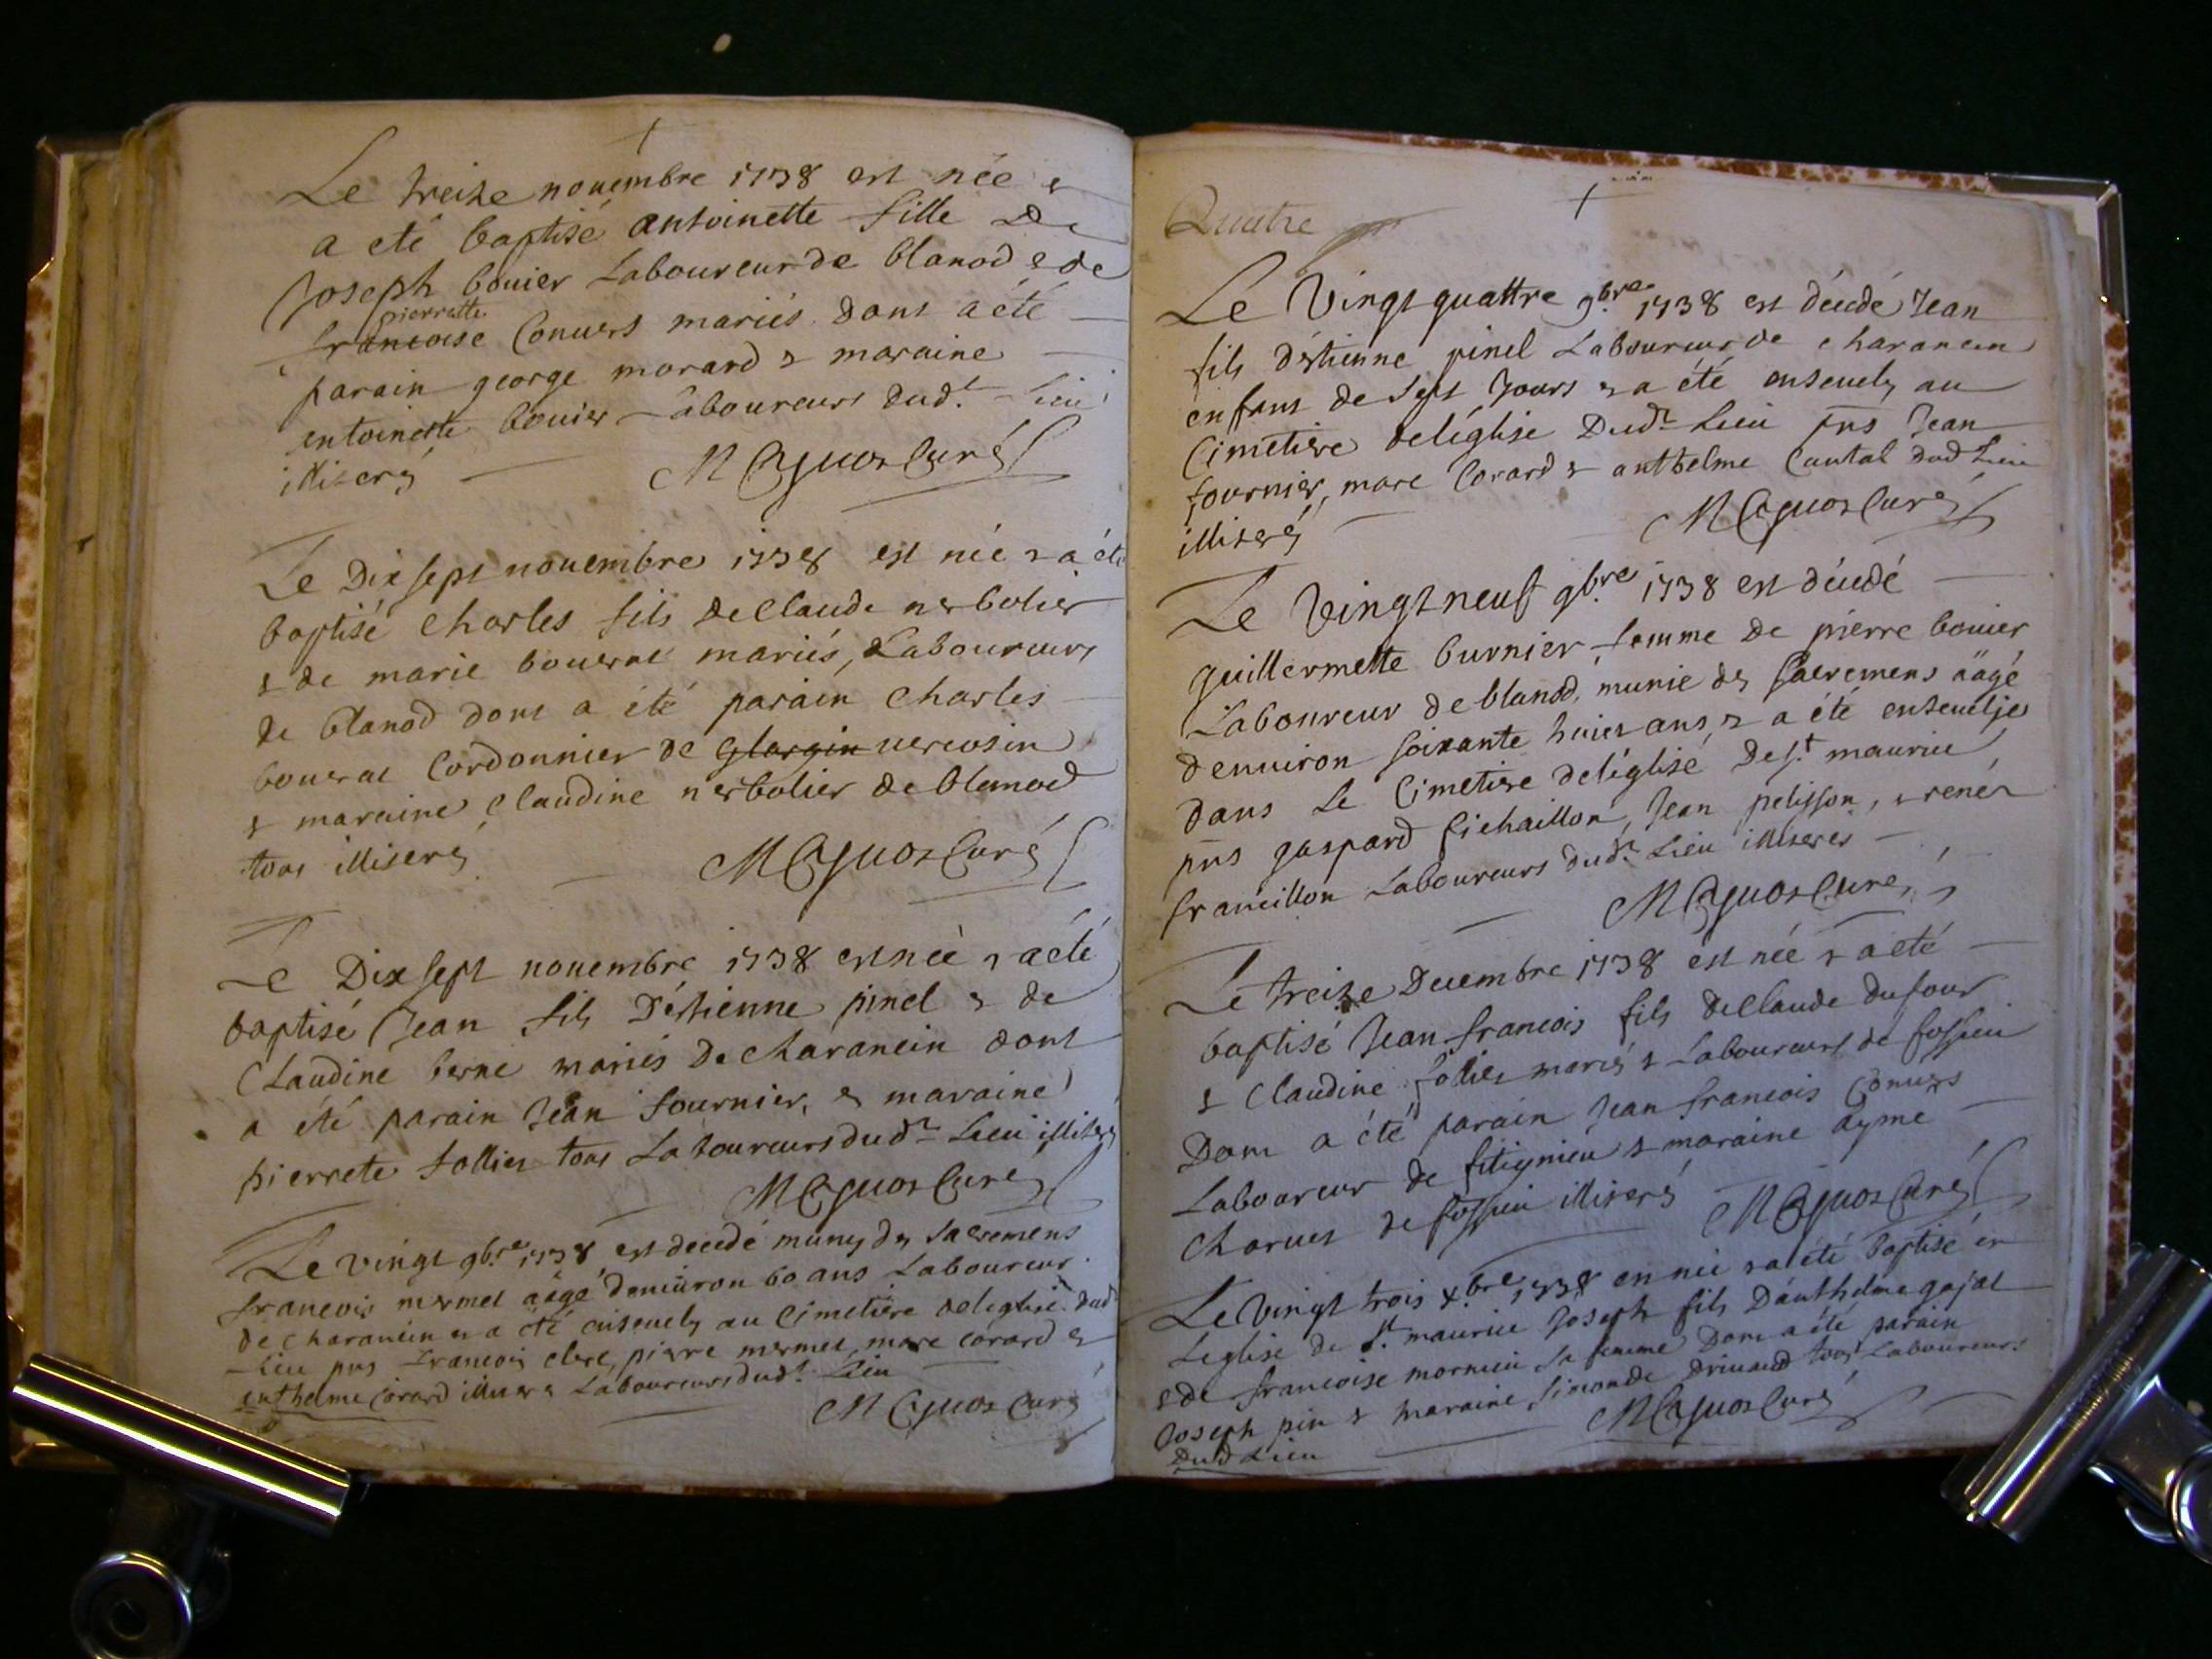 Le treize nouembre 1738 est née &
a eté baptisé antoinette fille De
Joseph bouier Laboureur de blanod & de
pierrette
francoise Conuers mariés dont a été
parain george morard & maraine
antoinette bouier Laboureurs dud.t Lieu
illiterés M Cayuos Curé
Le Dix sept nouembre 1738 est née & a été
baptisé charles fils de Claude nerbolier
& de marie bouerat mariés, Laboureurs
de blanod dont a été parain charles
bouerat Cordonnier de Glargin uercosin
& maraine Claudine nerbolier de blanod
tous illiserés M Cayuos Curé
Le Dix sept nouembre 1738 est née & a été
baptisé Jean fils D'éstienne pinel & de
Claudine berne mariés De charancin dont
a été parain Jean fournier, & maraine
pierrete follier tous Laboureurs dud.t Lieu illiserés
M Cayuos Curé
Le vingt 9bre 1738 est decedé muny des sacremens
francois mermet äagé denuiron 60 ans Laboureur
de charancin & a été enseuely au Cimetiere de leglise dud
Lieu pns francois clerc, pierre mermet, marc corard &
anthelme corard illiseres Laboureurs dud.t Lieu
M Cayuos Curé
Quatre
Le Vingt quattre 9bre 1738 est décédé Jean
fils d'éstienne pinel Laboureur de charancin
enfant de sept Jours & a été enseuely au
Cimetiere de léglise Dud.t Lieu pns Jean
fournier, marc Corard & anthelme Cantal dud Lieu
illiserés M Cayuos Curé
Le Vingt neuf 9bre 1738 est décédé
guillermette burnier femme De pierre bouier
Laboureur de blanod, munie des sacremens äagé
denuiron soixante huict ans, & a été enseuelje
dans Le Cimetiere de léglise De s.t maurice
pns gaspard fichaillon, Jean pelisson, & renés
francillon Laboureurs dud.t Lieu illiseres
M Cayuos Curé
Le treize Decembre 1738 est née & a eté
baptisé Jean francois fils de Claude dufour
& Claudine folier mariés & Laboureurs de fossieu
Dont a été parain Jean francois Conuers
Laboureur de fitignieu & maraine ayme
Charuet de fossieu illiserés M Cayuos Curé
Le Vingt trois xbre 1738 en née & a été baptisé en
Leglise de s.t maurice Joseph fils D'anthelme gajat
& de francoise mornieu sa femme Dont a été parain
Joseph pin & maraine simonde Driuaud tous Laboureurs
Dud Lieu M Cayuos Curé